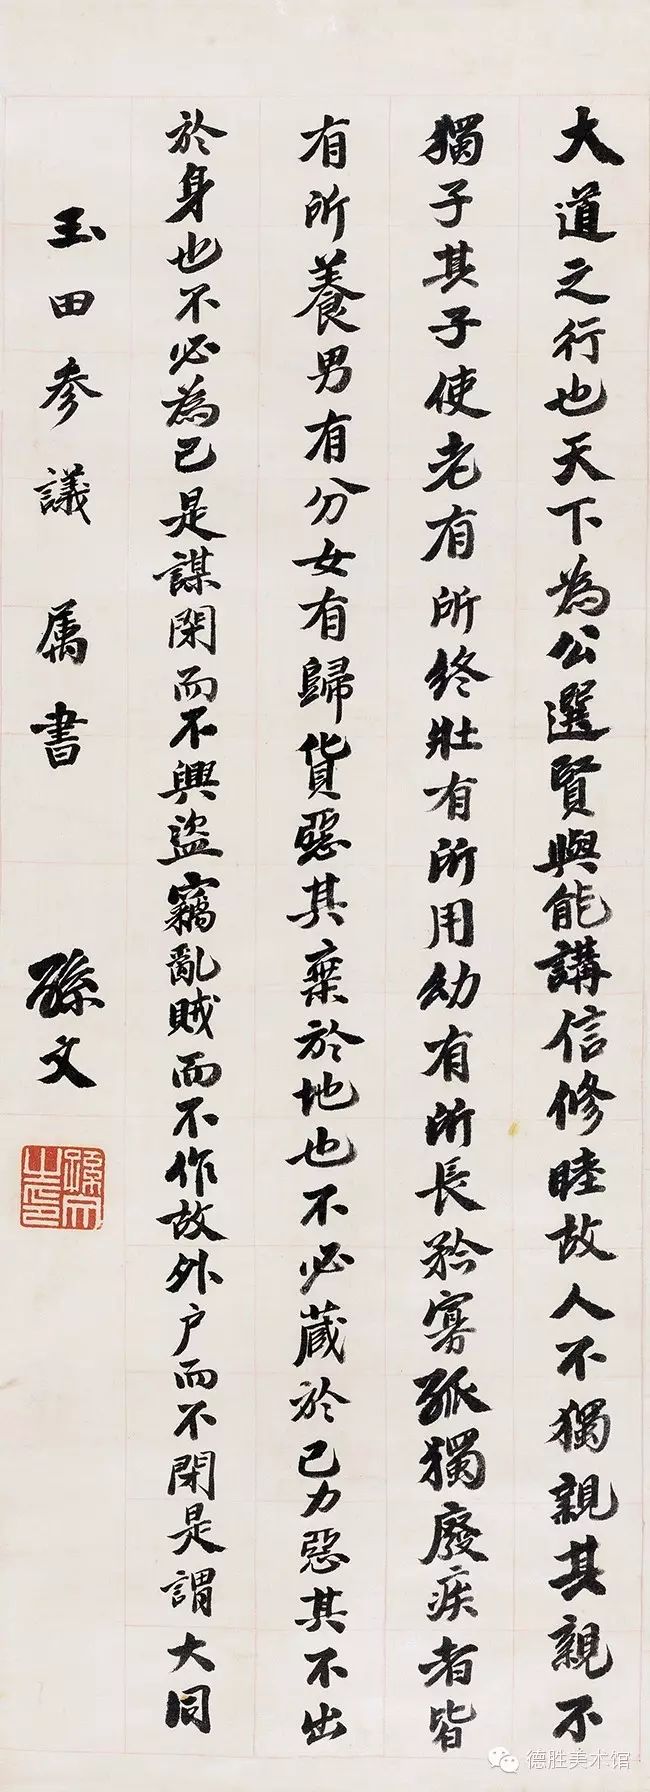 大道之行也天下為公選賢與能講信修睦故人不獨親其親不
獨子其子使老有所終壯有所用幼有所長矜寡孤獨廢疾者皆
有所養男有分女有歸貨惡其棄於地也不必藏於己力惡其不出
於身也不必為己是謀閑而不興盜竊亂賊而不作故外戶而不閉是謂大同
玉田參議 属書 孫文
孫文之印
德胜美术馆